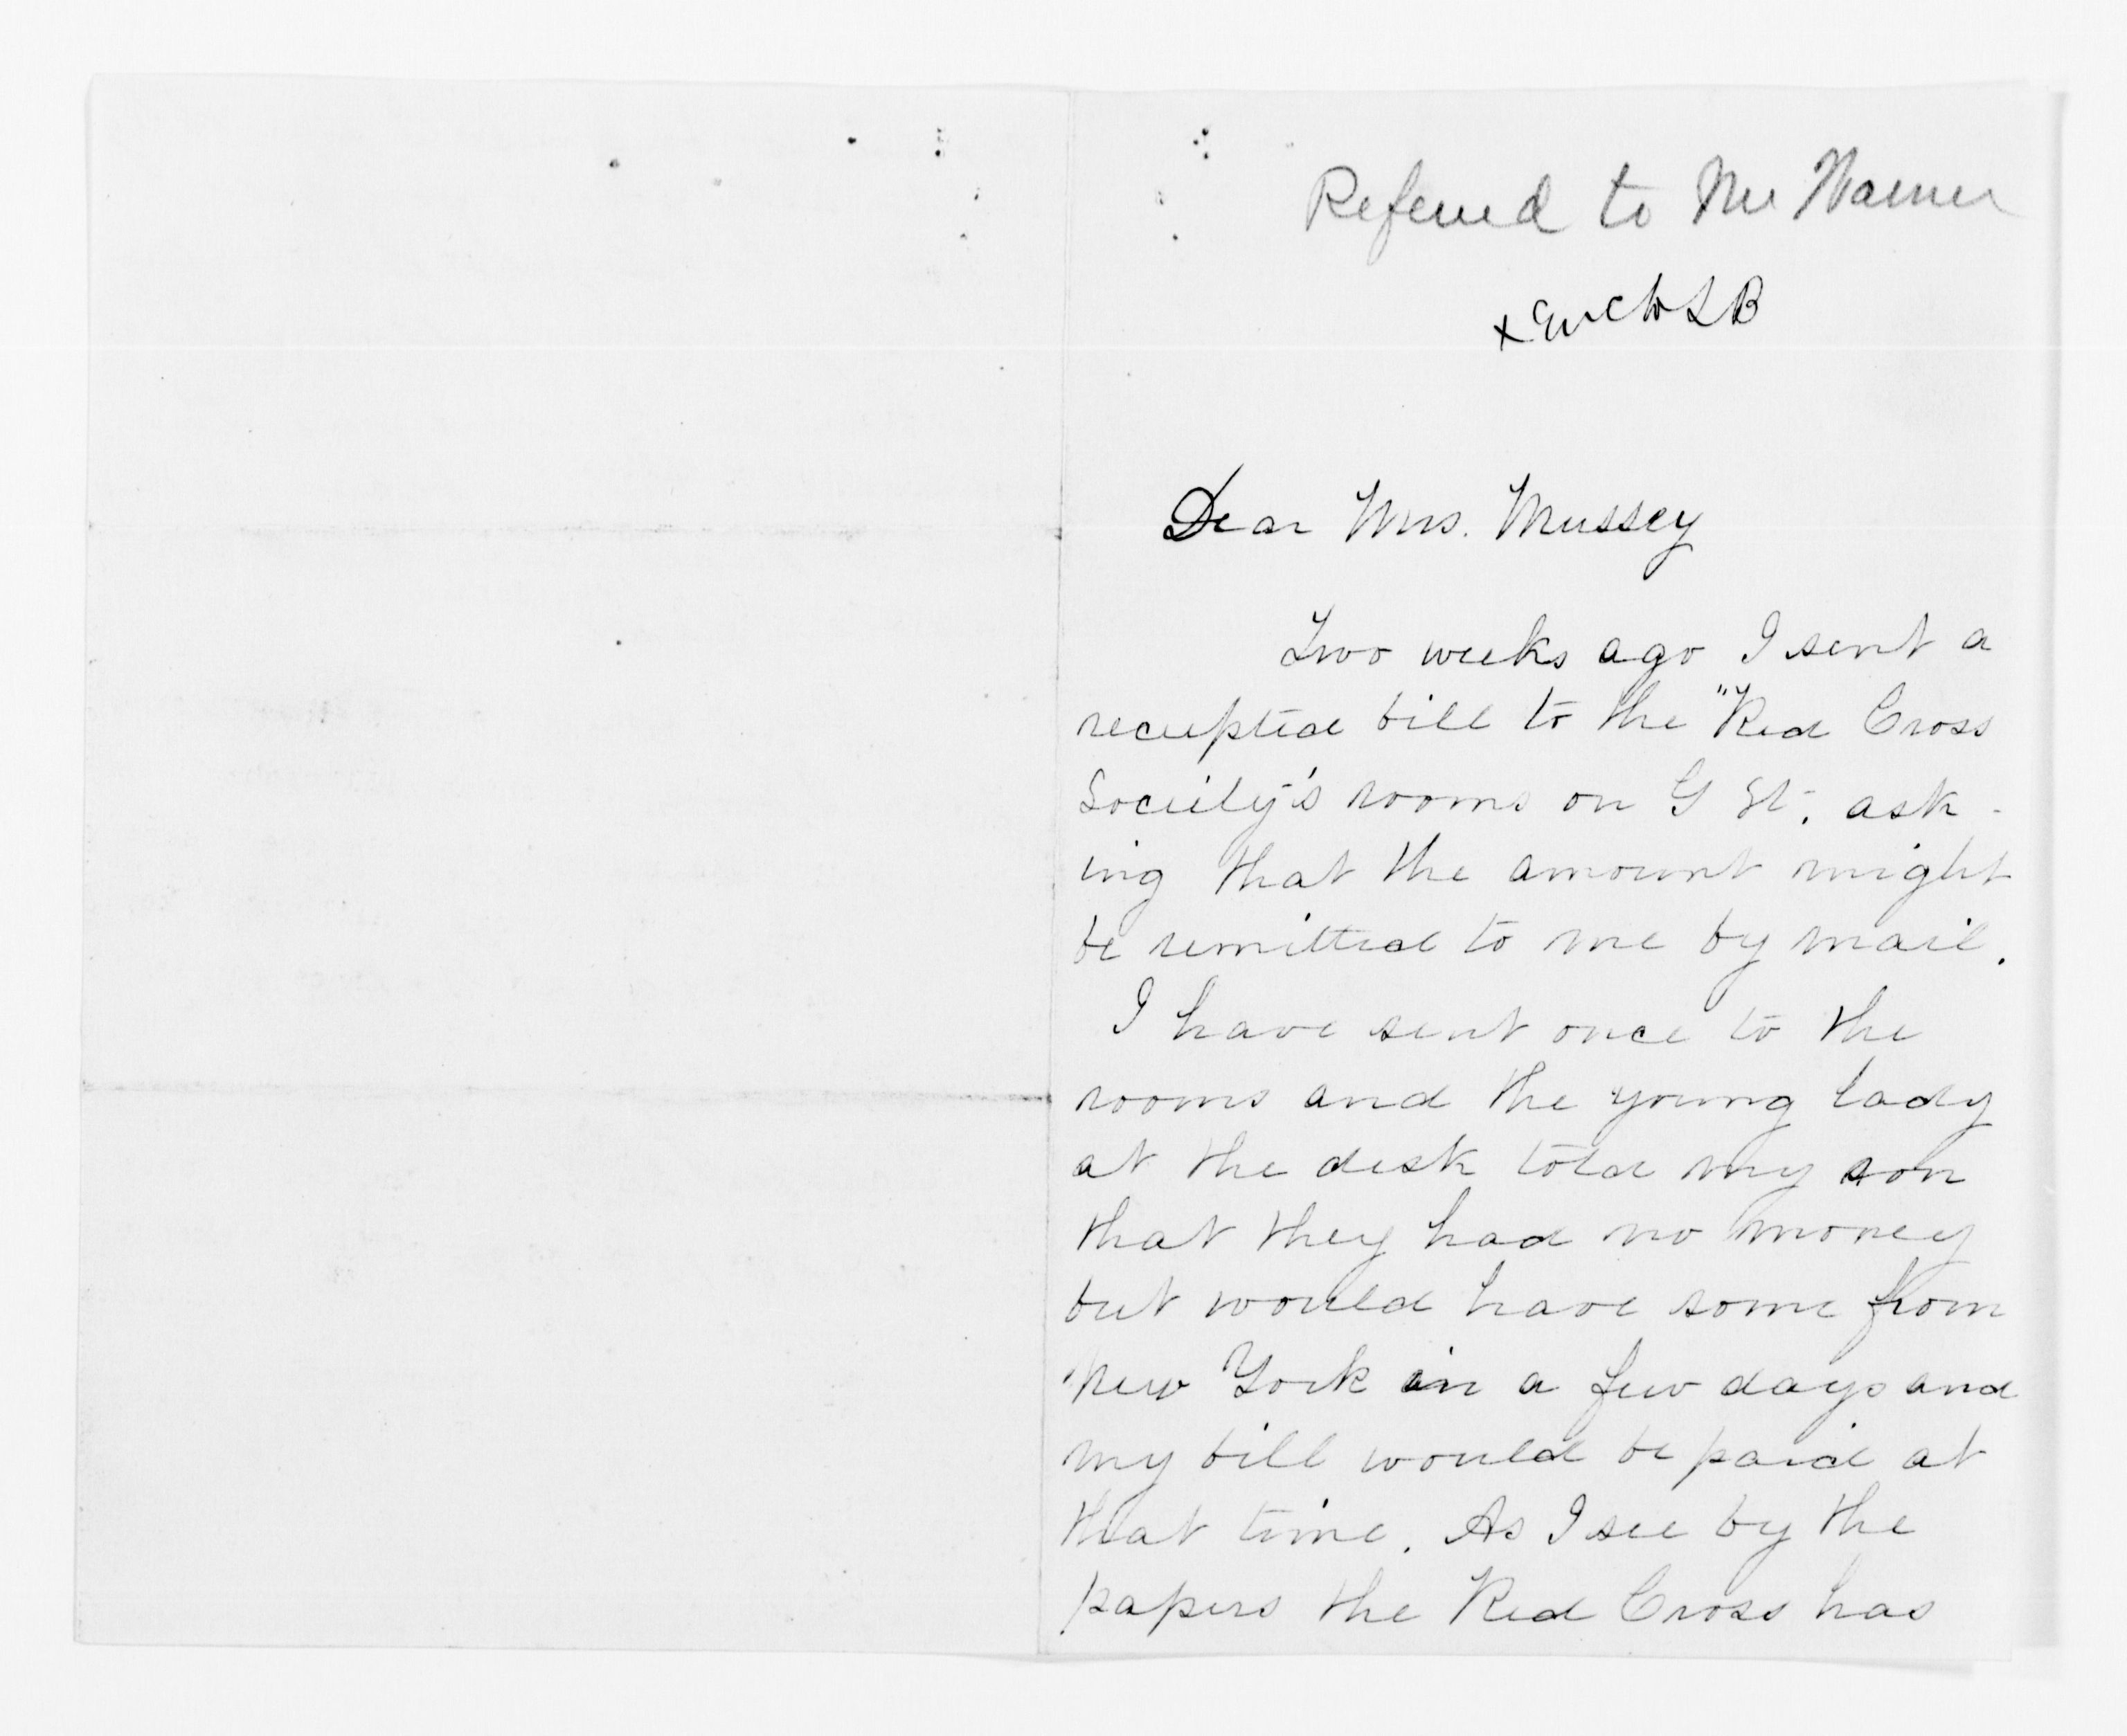 Referred to Mr Warner
Dear Mrs. Mussey
Two weeks ago I sent a
receipted bill to the "Red Cross
Society's rooms on G St. ask-
ing that the amount might
be remitted to me by mail.
I have sent once to the
rooms and the young lady
at the desk told my son
that they had no money
but would have some from
New York in a few days and
my bill would be paid at
that time. As I see by the
papers the Red Cross has